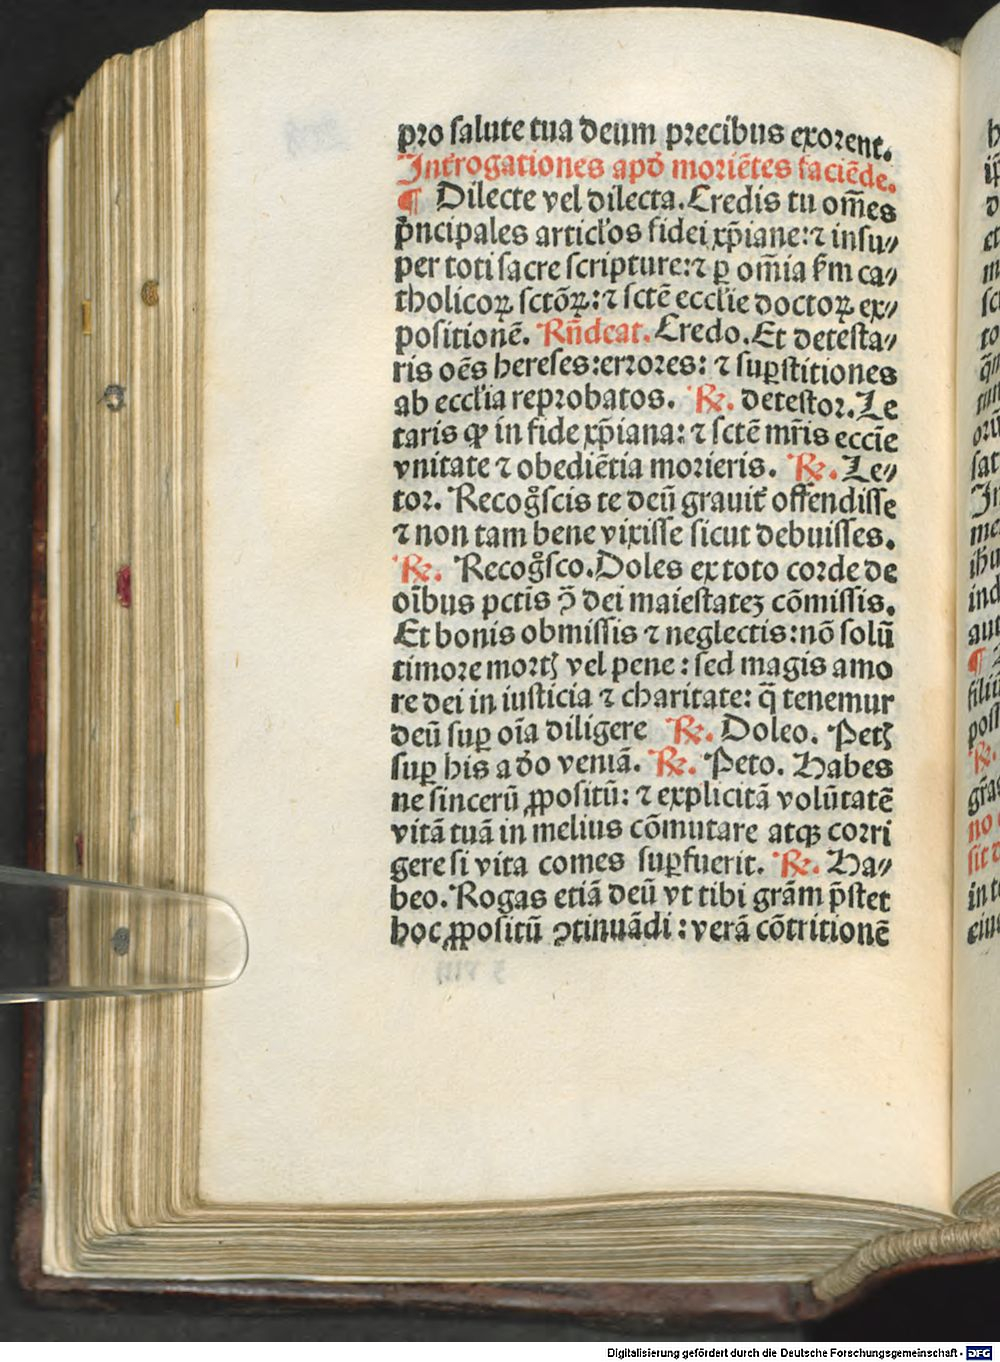 pro salute tua deum precibus exorent.
Int̃rogationes apd̾ moriẽtes faciẽde.
¶ Dilecte vel dilecta. Credis tu om̃es
p̃ncipales articl'os fidei xp̃iane: ⁊ insu⸗
per toti sacre scripture: ⁊ ꝑ om̃ia ẜm ca⸗
tholicoꝝ sctõꝝ: ⁊ sctẽ eccl'ie doctoꝝ ex⸗
positionẽ. Rñdeat. Credo. Et detesta⸗
ris oẽs hereses: errores: ⁊ suꝑstitiones
ab eccl'ia reprobatos. ℟. detestor. Le
taris ꝙ in fide xp̃iana: ⁊ sctẽ mr̃is ecclie
vnitate ⁊ obediẽtia morieris. ℟. Le⸗
tor. Recogͦscis te deũ grauit̃ offendisse
⁊ non tam bene vixisse sicut debuisses.
℟. Recogͦsco. Doles ex toto corde de
oĩbus pctis ꝯ̃ dei maiestateꝫ cõmissis.
Et bonis obmissis ⁊ neglectis: nõ solũ
timore mortꝭ vel pene: sed magis amo
re dei in iusticia ⁊ charitate: q̃ tenemur
deũ suꝑ oĩa diligere ℟. Doleo. Petꝭ
suꝑ his a do̾ veniã. ℟. Peto. Habes
ne sincerũ ꝓpositũ: ⁊ explicitã volũtatẽ
vitã tuã in melius cõmutare atqꝫ corri
gere si vita comes suꝑfuerit. ℟. Ha⸗
beo. Rogas etiã deũ vt tibi grãm p̃stet
hoc ꝓpositũ ꝯtinuãdi: verã cõtritionẽ
Digitalisierung gefördert durch die Deutsche Forschungsgemeinschaft - DFG